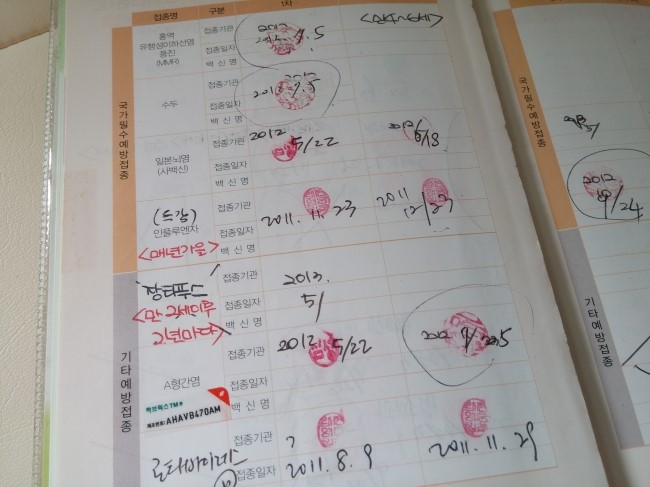 접종명 구분 1차
홍역
유행성이하선염
풍진
(MMR)
접종기관
접종일자
백 신 명
2012 9.5
<만4~6세>
수두
접종기관
접종일자
백 신 명
2012 9.5
일본뇌염
(사백신)
접종기관
접종일자
백 신 명
2012 5/22
2012 6/18
(독감)
인플루엔자
<매년가을>
접종기관
접종일자
백 신 명
2011. 11. 23
2011 12/27
장티푸스
<만 2세이후
2년마다>
접종기관
접종일자
백 신 명
2013.
5/
A형간염
접종기관
접종일자
백 신 명
2012 5/22
2012
하브릭스TM주
제조번호: AHAVB470AM
로타바이러스
접종기관
접종일자
?
2011. 8. 9
2011. 11. 29
국가필수예방접종
기타예방접종
국가필수예방접종
2012
9/24
기타예방접종